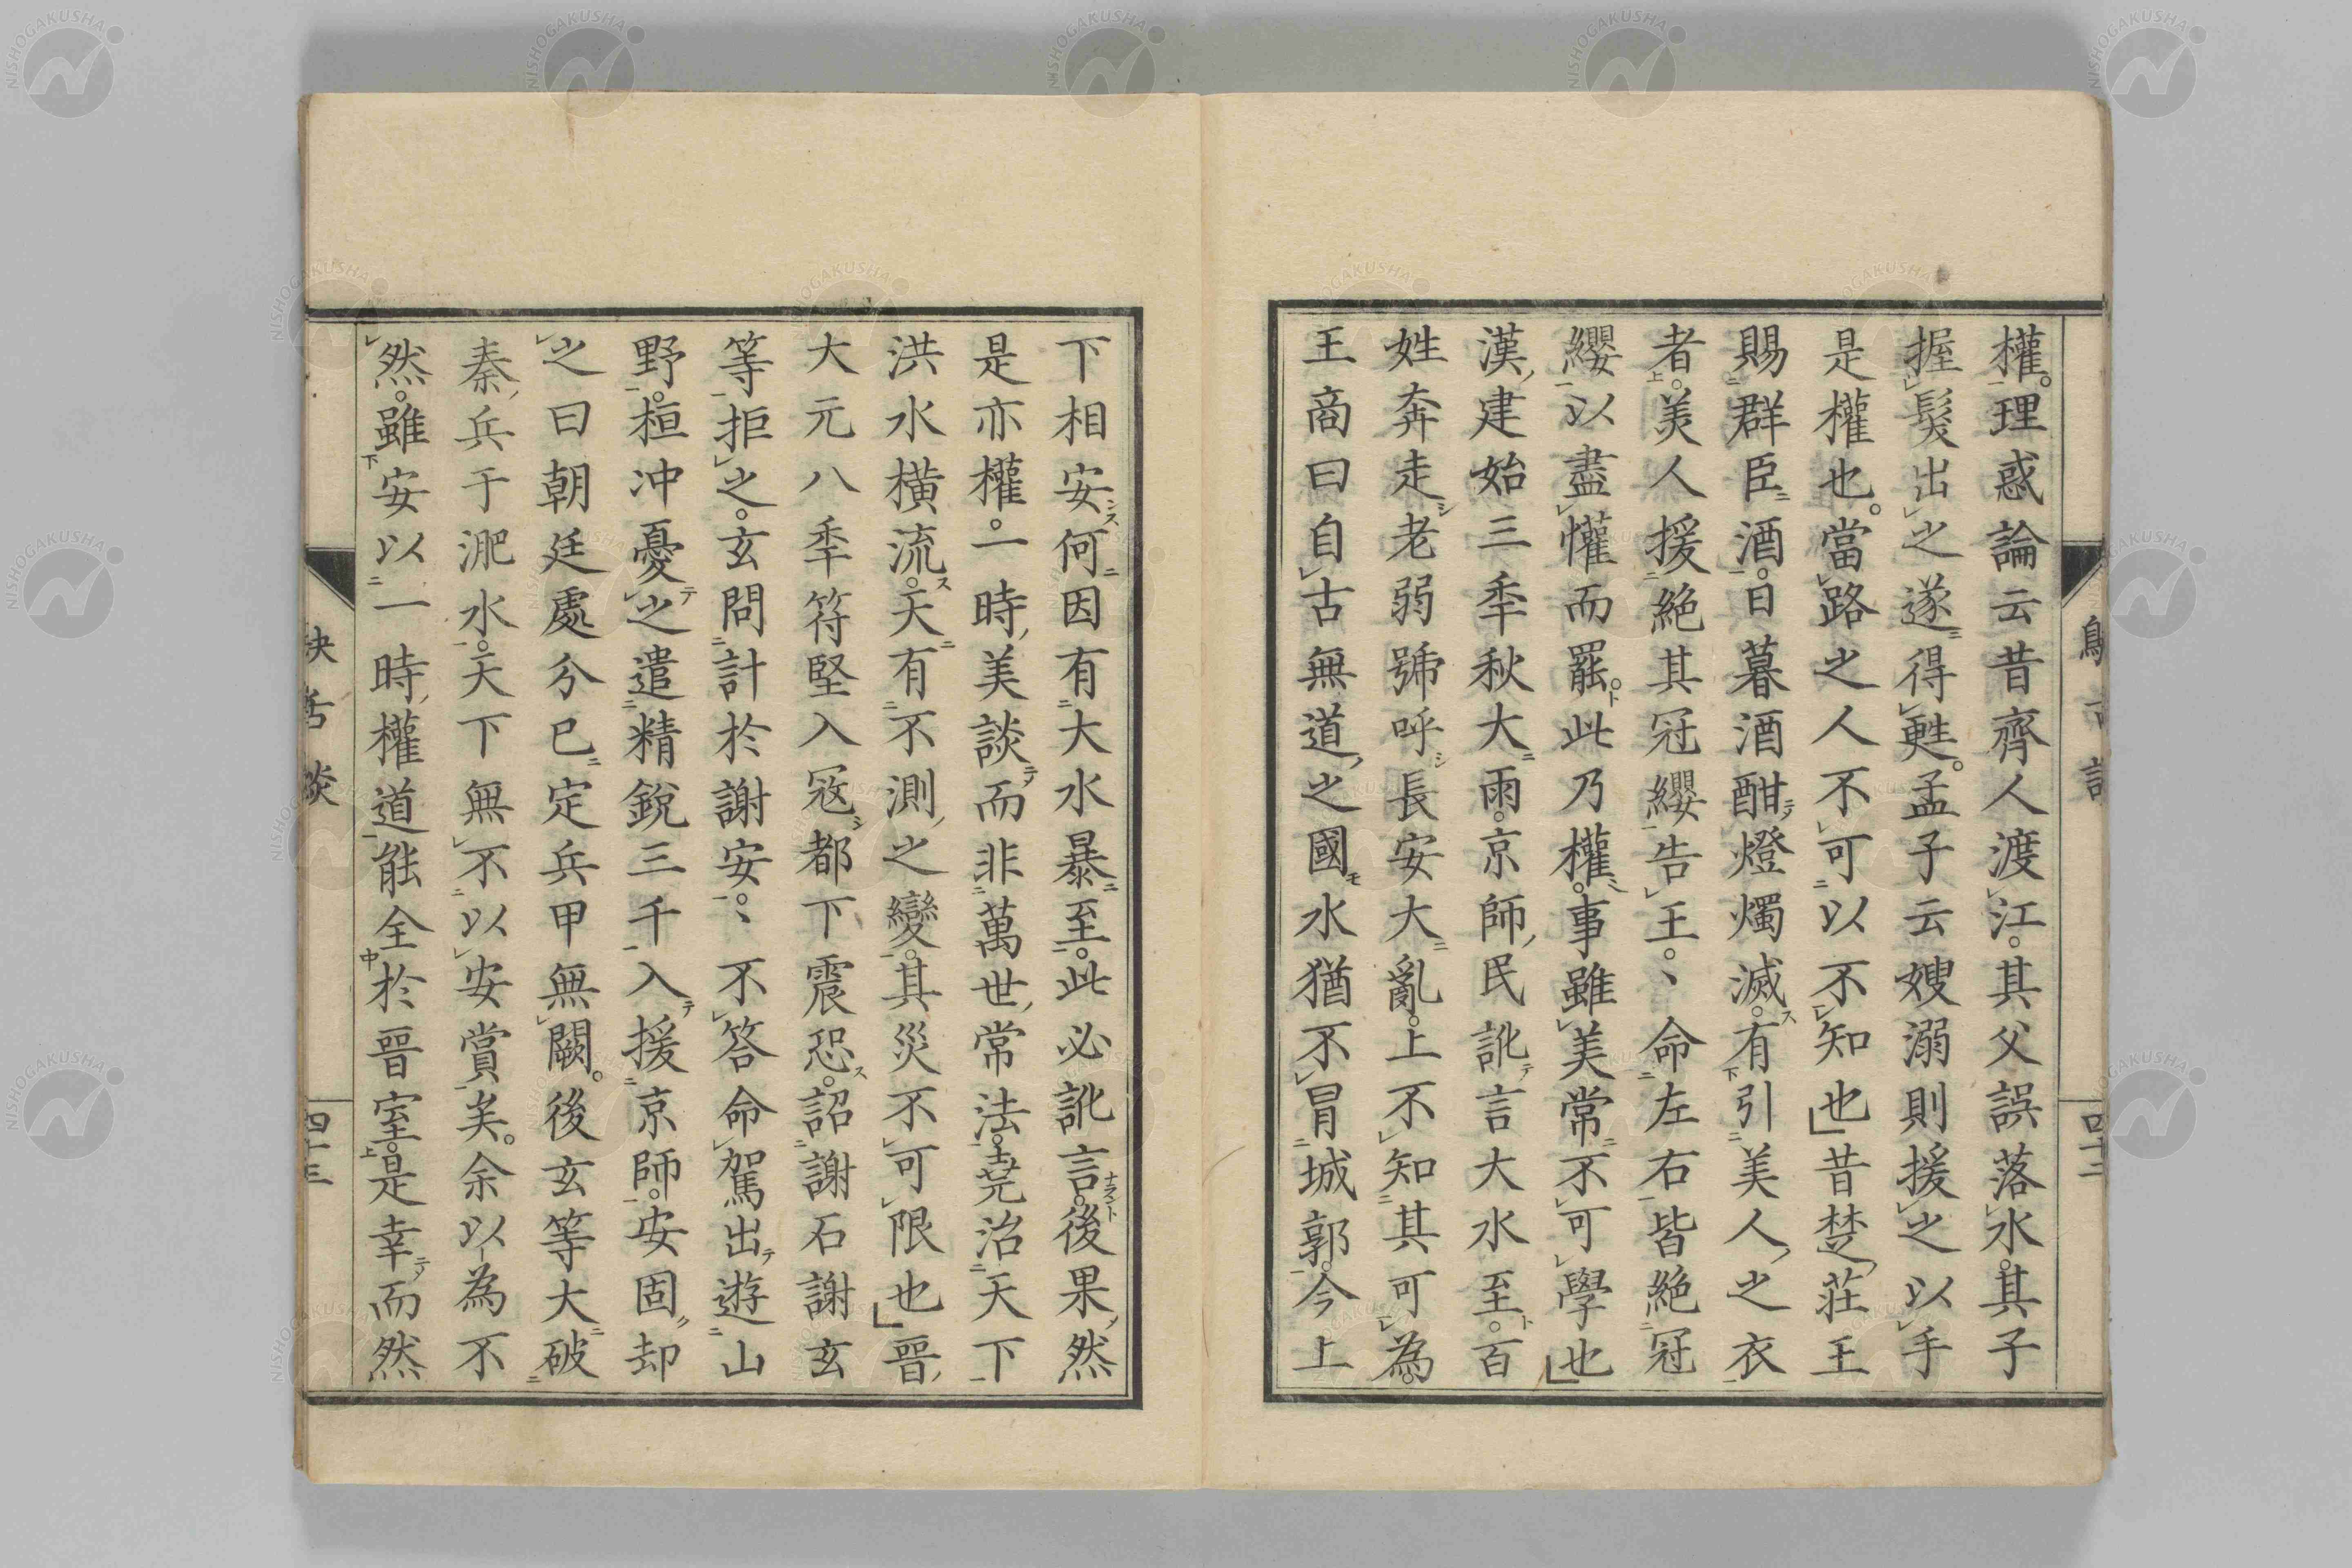 權。理惑論云昔齊人渡江。其父誤落水。其子
握髮出之遂得甦。孟子云嫂溺則援之以手
是權也。當路之人不可以不知也」昔楚莊王
賜群臣酒。日暮酒酣燈燭滅。有引美人之衣
者。美人援絕其冠纓告王。丶命左右皆絕冠
纓以盡懽而罷。此乃權。事雖美常不可學也」
漢建始三秊秋大雨。京師民訛言大水至。百
姓奔走老弱號呼長安大亂。上不知其可為。
王商曰自古無道之國水猶不冒城郭。今上
下相安何因有大水暴至。此必訛言。後果然
是亦權。一時美談而非萬世常法。堯治天下
洪水橫流。天有不測之變。其災不可限也」晉
大元八秊符堅入冦都下震恐。詔謝石謝玄
等拒之。玄問計於謝安。丶不答命駕出遊山
野。桓沖憂之遣精銳三千入援京師。安固却
之曰朝廷處分已定兵甲無闕。後玄等大破
秦兵于淝水。天下無不以安賞矣。余以為不
然。雖安以一時權道能全於晉室。是幸而然
四十二
四十三
NISHOGAKUSHA